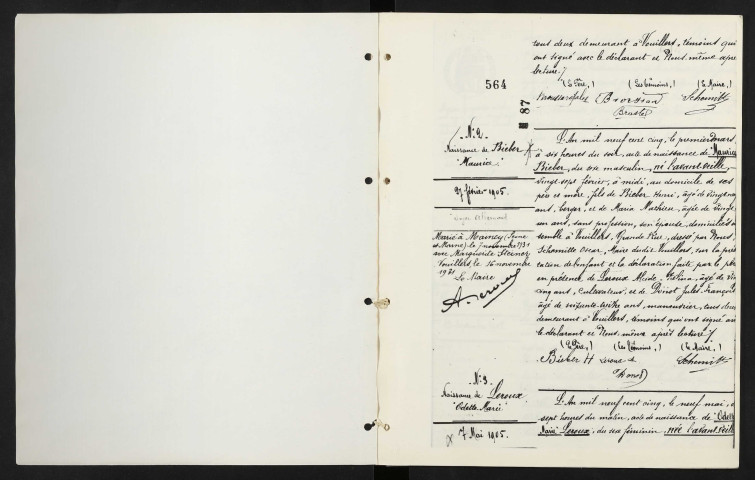 tous deux demeurant à Vouillers, témoins qui
ont signé avec le déclarant et Nous-même après
lecture./
(Le Père,) (Les témoins,) (Le Maire,)
Schomitte
564
87
N° 2.
Naissance de Bieber
"Maurice"
27 février 1905.
Marié à Maincy (Seine
et Marne) le 7 novembre 1931
avec Marguerite
Vouillers, le 16 novembre
1931
Le Maire
L'An mil neuf cent cinq, le premier mars
à six heures du soir, acte de naissance de "Maurice
Bieber, du sexe masculin, né l'avant-veille,
vingt-sept février, à midi, au domicile de ses
père et mère, fils de Bieber Henri, âgé de vingt
ans, berger, et de Maria Mathieu, âgée de vingt
un ans, sans profession, son épouse, domiciliés en
semble à Vouillers, Grande Rue, dressé par Nous,
Schomitte Oscar, Maire dudit Vouillers, sur la présen
tation de l'enfant et la déclaration faite par le père
en présence de Leroux âgé de
cinq ans, cultivateur, et de Jules François
âgé de soixante ans, manouvrier, tous deux
demeurant à Vouillers, témoins qui ont signé avec
le déclarant et Nous-même après lecture./
(Le Père,) (Les témoins,) (Le Maire,)
Bieber H Leroux A Schomitte
N° 3.
Naissance de Leroux
"Odette Marie"
7 Mai 1905.
L'An mil neuf cent cinq, le neuf mai, à
sept heures du matin, acte de naissance de "Odette
Marie" Leroux, du sexe féminin, née l'avant-veille